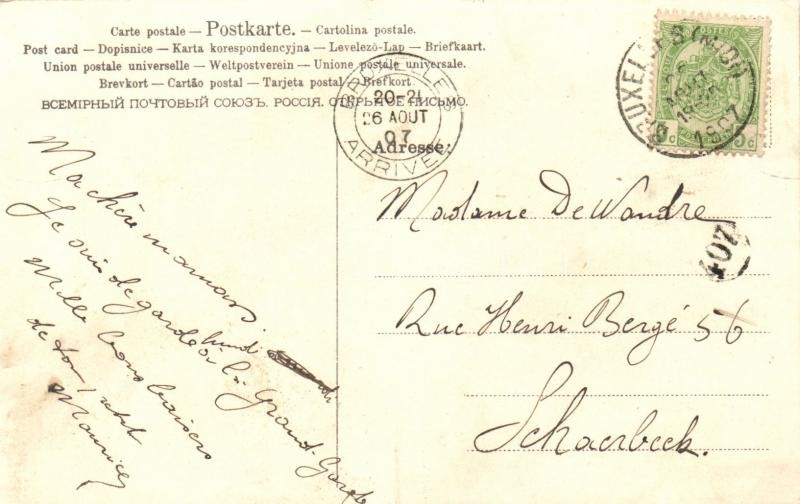 Carte postale — Postkarte. — Cartolina postale.
Post card — Dopisnice — Karta korespondencyjna — Levelező-Lap — Briefkaart.
Union postale universelle — Weltpostverein — Unione postale universale.
Brevkort — Cartão postal — Tarjeta postal — Brefkort.
ВСЕМІРНЫЙ ПОЧТОВЫЙ СОЮЗЪ. РОССІЯ. ОТКРЫТОЕ ПИСЬМО.
BRUXELLES
20-21
26 AOUT
07
ARRIVEE
Adresse:
BRUXELLES
1907
5c
Madame De Wandre
407
Rue Henri Bergé 56
Schaerbeek.
Ma chère maman.
Je suis de garde lundi
à la Grand-Garde
Mille bons baisers
de ton petit
Maurice